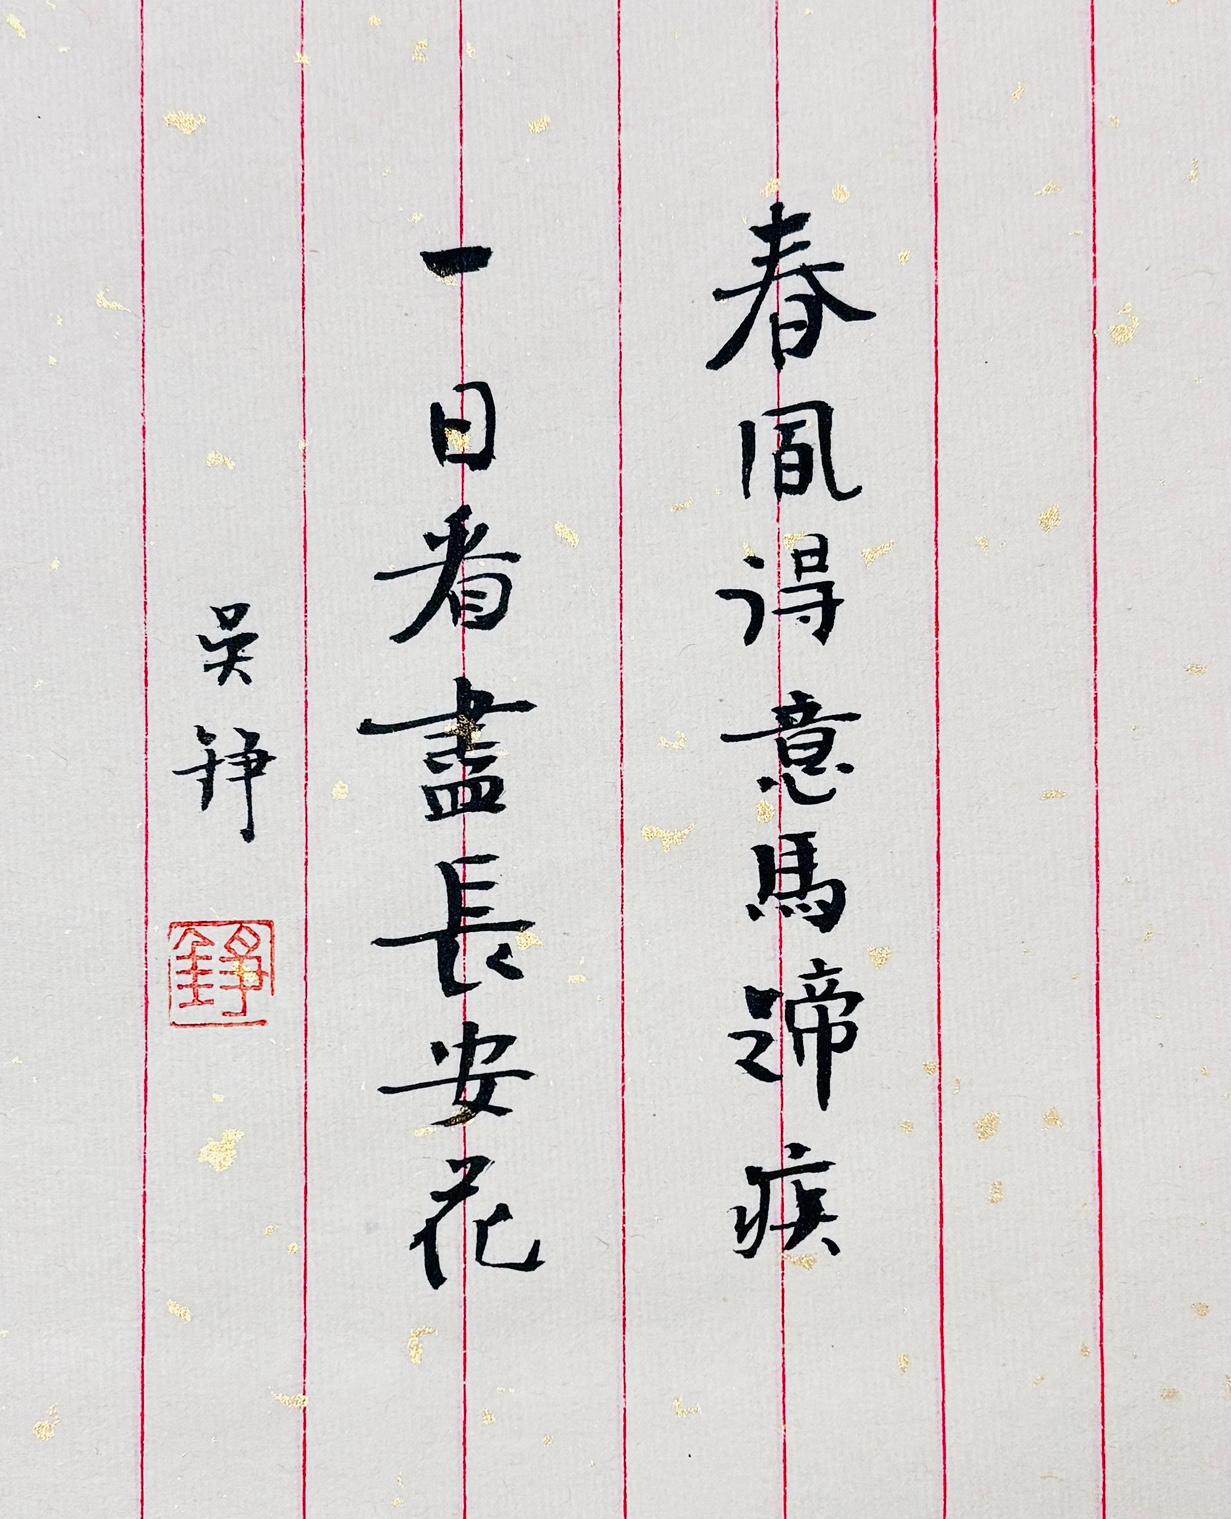 春風得意馬蹄疾
一日看盡長安花
吳錚
錚